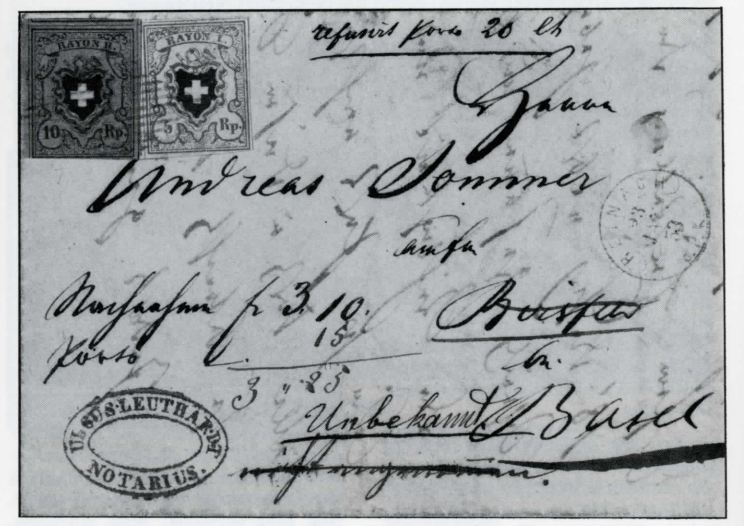 RAYON II.
10 Rp.
RAYON I.
5 Rp.
refusirt Porto 20 Ct
Herrn
Andreas Sommer
Nachnahme fr 3.10.
15
Porto
3 " 25
in
Unbekannt. Basel
nicht angenommen.
LEUTHARDT
NOTARIUS.